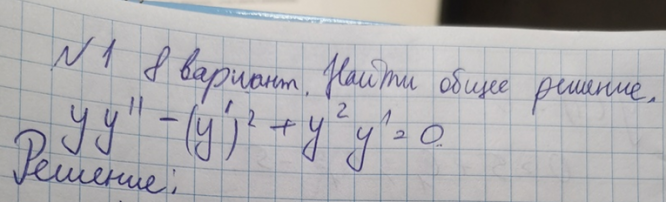 №1 8 вариант. Найти общее решение.
yy'' - (y')² + y²y' = 0.
Решение: